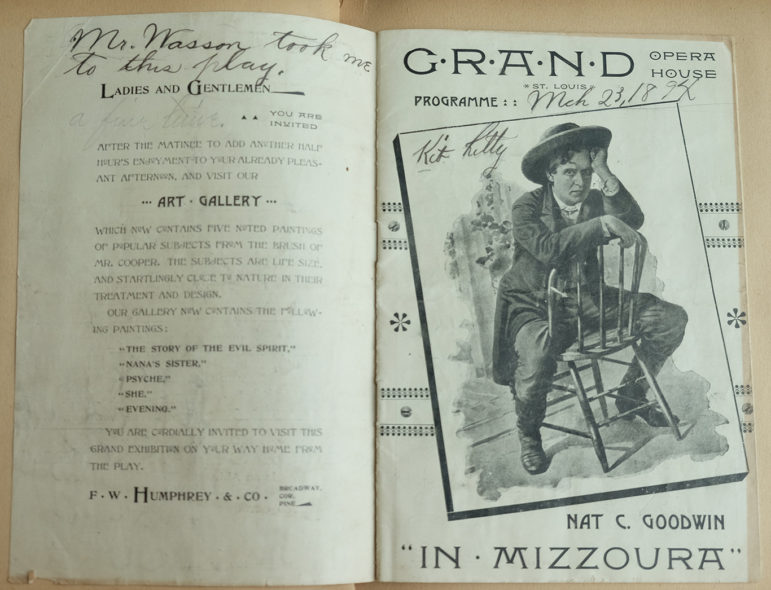 Mr. Wasson took me
to this play.
LADIES AND GENTLEMEN
a fine time.
YOU ARE
INVITED
AFTER THE MATINEE TO ADD ANOTHER HALF
HOUR'S ENJOYMENT TO YOUR ALREADY PLEAS-
ANT AFTERNOON, AND VISIT OUR
··· ART · GALLERY ···
WHICH NOW CONTAINS FIVE NOTED PAINTINGS
OF POPULAR SUBJECTS FROM THE BRUSH OF
MR. COOPER. THE SUBJECTS ARE LIFE SIZE,
AND STARTLINGLY CLOSE TO NATURE IN THEIR
TREATMENT AND DESIGN.
OUR GALLERY NOW CONTAINS THE FOLLOW-
ING PAINTINGS:
"THE STORY OF THE EVIL SPIRIT,"
"NANA'S SISTER,"
"PSYCHE,"
"SHE,"
"EVENING."
YOU ARE CORDIALLY INVITED TO VISIT THIS
GRAND EXHIBITION ON YOUR WAY HOME FROM
THE PLAY.
F · W · HUMPHREY · & CO ·
BROADWAY,
COR.
PINE
G·R·A·N·D OPERA
HOUSE
*ST. LOUIS*
PROGRAMME:: Mch 23, 18
NAT C. GOODWIN
"IN · MIZZOURA"